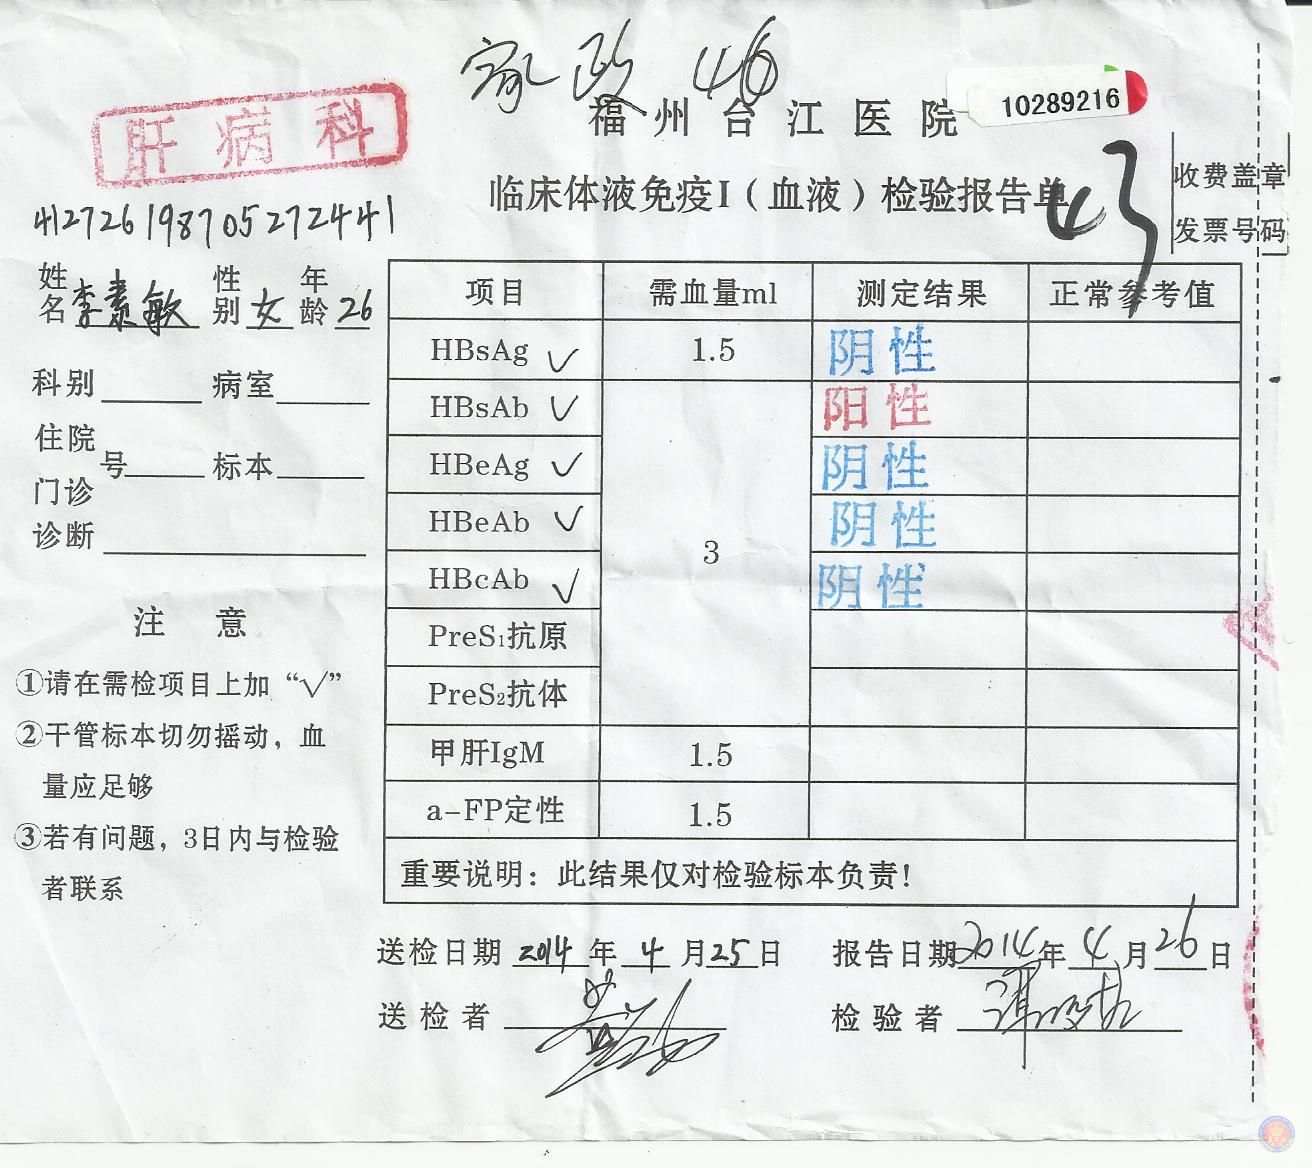 家政 46
10289216
肝病科
福州台江医院
43
收费盖章
发票号码
临床体液免疫I（血液）检验报告单
412726198705272441
姓名 李素敏 性别 女 年龄 26
科别 病室
住院
号 标本
门诊
诊断
项目 需血量ml 测定结果 正常参考值
HBsAg √ 1.5 阴性
HBsAb √ 3 阳性
HBeAg √ 阴性
HBeAb √ 阴性
HBcAb √ 阴性
PreS₁抗原
PreS₂抗体
甲肝IgM 1.5
a-FP定性 1.5
重要说明：此结果仅对检验标本负责！
注意
①请在需检项目上加“√”
②干管标本切勿摇动，血
量应足够
③若有问题，3日内与检验
者联系
送检日期 2014 年 4 月 25 日 报告日期 2014 年 4 月 26 日
送检者 检验者